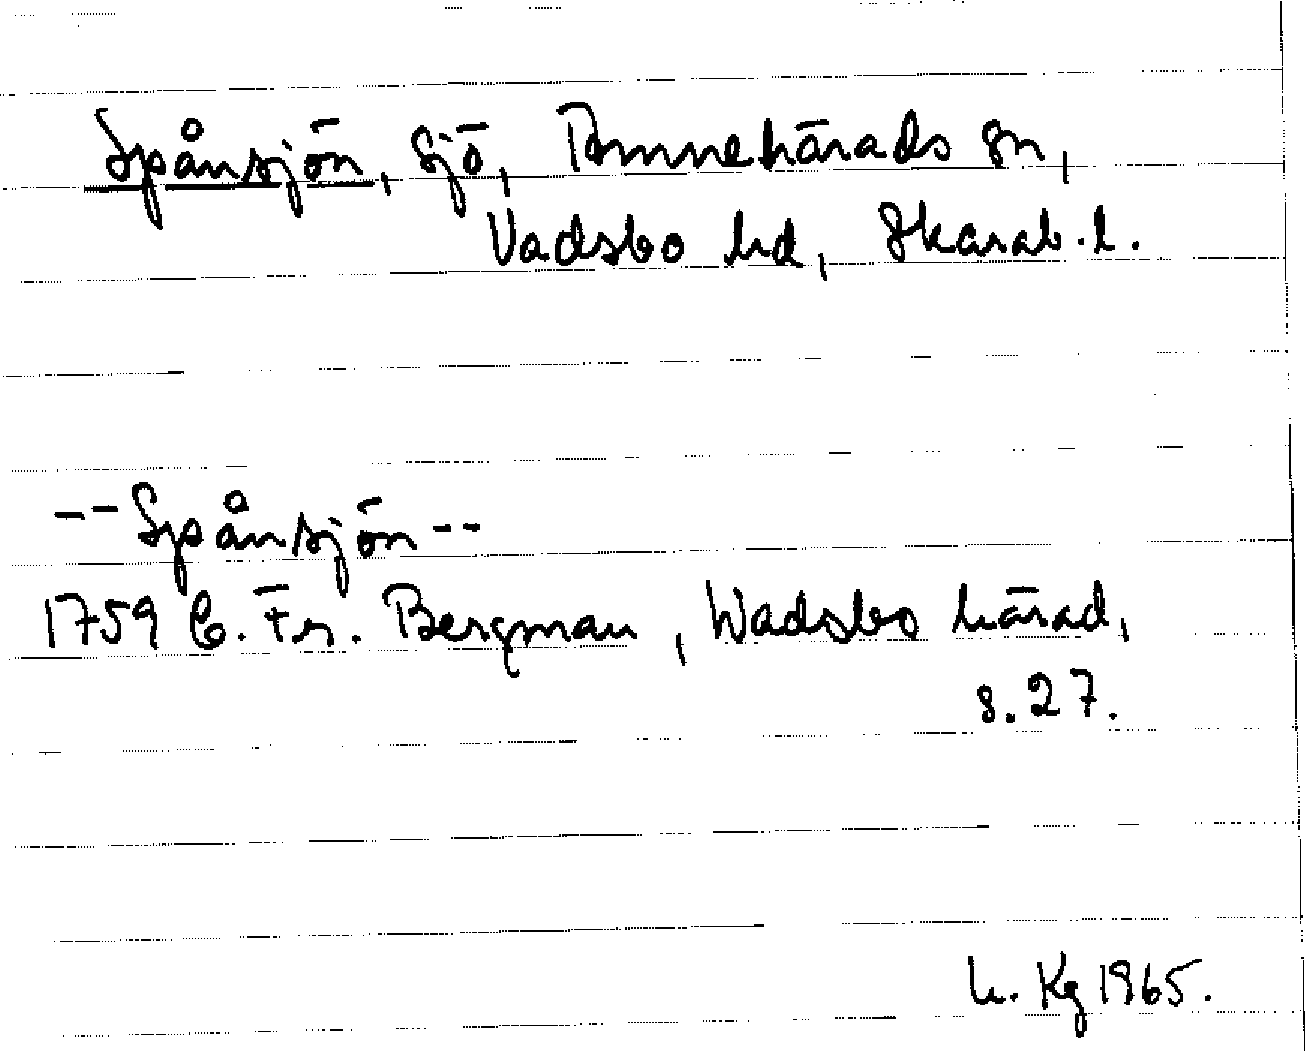 Spånsjön, sjö, Amnehärads sn,
Vadsbo hd, Skarab.l.
-- Spånsjön --
1759 C. Fr. Bergman, Wadsbo härad,
s. 27.
L. Kg 1965.